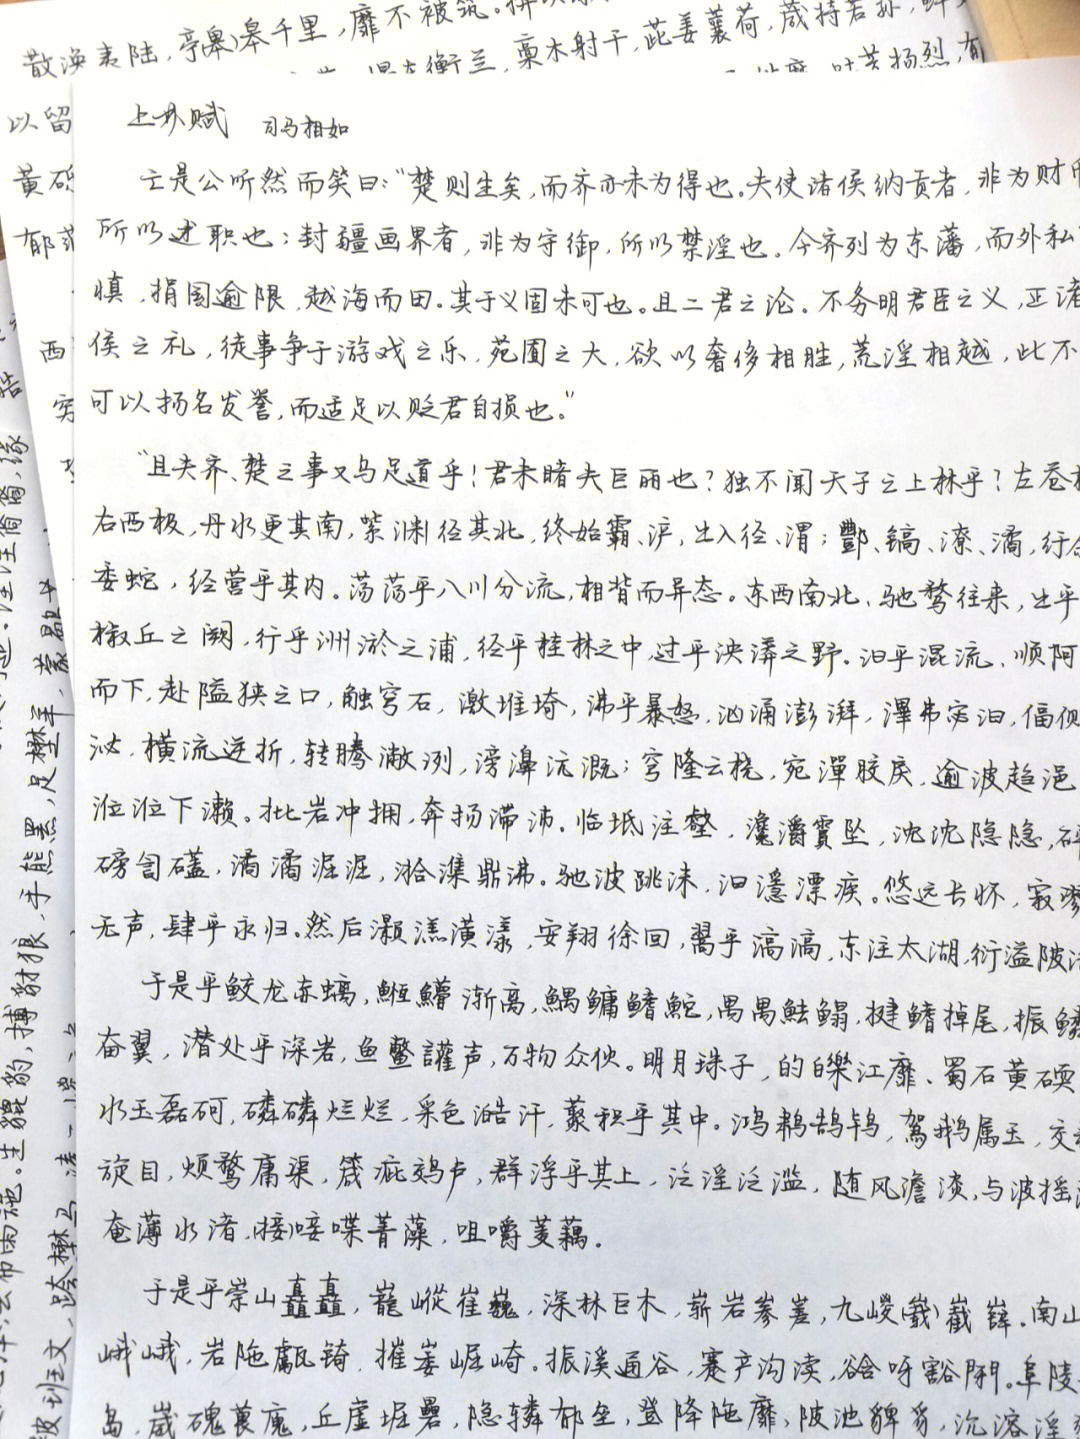 散涣夷陆,亭(皋)皋千里,靡不被筑。
衡兰,稾木射干,茈姜蘘荷,葴持若荪,鲜
扬烈,有
以留
黄砾
郁
西
上林赋 司马相如
亡是公听然而笑曰:“楚则失矣,而齐亦未为得也。夫使诸侯纳贡者,非为财币
所以述职也;封疆画界者,非为守御,所以禁淫也。今齐列为东藩,而外私
慎,捐国逾限,越海而田。其于义固未可也。且二君之论。不务明君臣之义,正诸
侯之礼,徒事争于游戏之乐,苑囿之大,欲以奢侈相胜,荒淫相越,此不
可以扬名发誉,而适足以贬君自损也。”
“且夫齐、楚之事又乌足道乎!君未睹夫巨丽也?独不闻天子之上林乎?左苍梧
右西极,丹水更其南,紫渊径其北,终始霸、浐,出入泾、渭;酆、镐、潦、潏,纡余
委蛇,经营乎其内。荡荡乎八川分流,相背而异态。东西南北、驰骛往来,出乎
椒丘之阙,行乎洲淤之浦,经乎桂林之中,过乎泱漭之野。汩乎混流、顺阿
而下,赴隘狭之口,触穹石,激堆埼,沸乎暴怒,汹涌澎湃,滭弗宓汩,偪侧
泌,横流逆折,转腾潎洌,滂濞沆溉;穹隆云桡,宛潬胶戾,逾波趋浥
涖涖下濑。批岩冲拥,奔扬滞沛。临坻注壑,瀺灂霣坠,沈沈隐隐,砰
磅訇礚,潏潏淈淈,湁潗鼎沸。驰波跳沫,汩㴔漂疾。悠远长怀,寂漻
无声,肆乎永归。然后灏溔潢漾,安翔徐回,翯乎滈滈,东注太湖,衍溢陂池
于是乎鲛龙赤螭,䱍䲛渐离,鰅鳙鳍鮀,禺禺魼鳎,揵鳍掉尾,振鳞
奋翼,潜处乎深岩,鱼鳖讙声,万物众伙。明月珠子,的皪江靡、蜀石黄碝
水玉磊砢,磷磷烂烂,采色澔汗,藂积乎其中。鸿鹔鹄鸨,鴐鹅属玉,交
旋目,烦鹜庸渠,箴疵䴔卢,群浮乎其上,泛淫泛滥,随风澹淡,与波摇荡
奄薄水渚,(唼)唼喋菁藻,咀嚼菱藕。
于是乎崇山矗矗,巃嵷崔巍,深林巨木,崭岩参差,九嵕(巀)巀嶭。南山
峨峨,岩陁甗锜,摧崣崛崎。振溪通谷,蹇产沟渎,谽呀豁閜。阜陵
岛,崴磈葨廆,丘虚堀礨,隐辚郁垒,登降陁靡,陂池貏豸,沇溶淫鬻
生貔豹,搏豺狼、手熊罴,足壄羊,蒙鹖
被班文,跨壄马